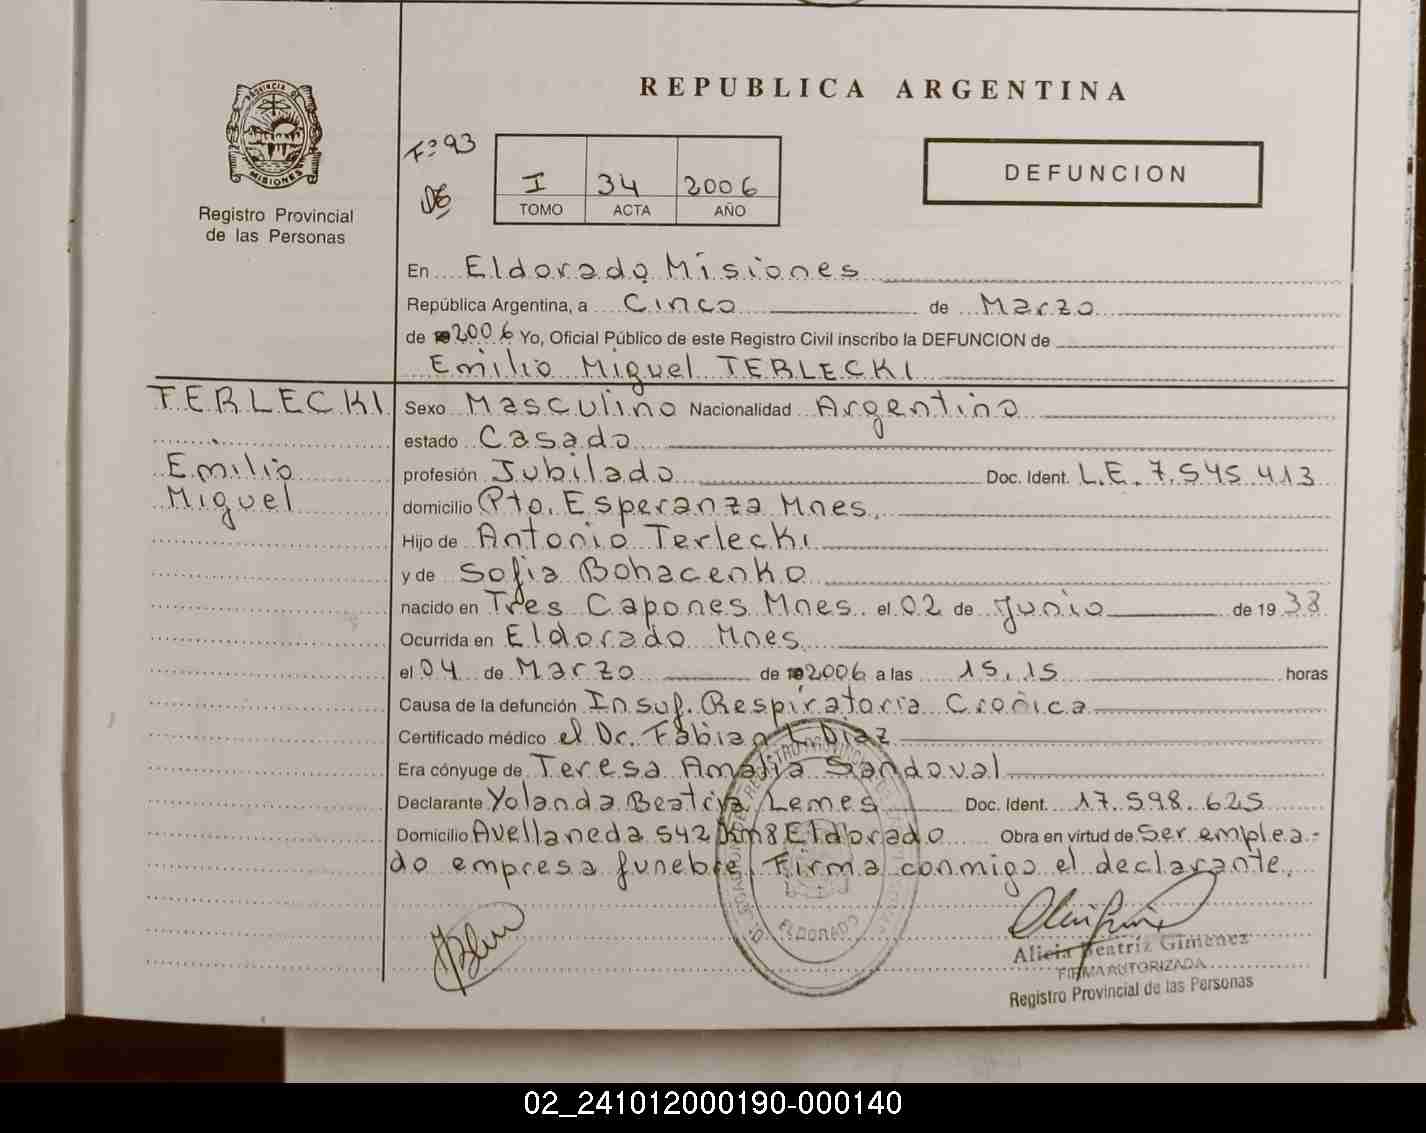 REPUBLICA ARGENTINA
PROVINCIA DE
MISIONES
Registro Provincial
de las Personas
Fº 93
I 34 2006
TOMO ACTA AÑO
DEFUNCION
En Eldorado Misiones
República Argentina, a Cinco de Marzo
de 2006 Yo, Oficial Público de este Registro Civil inscribo la DEFUNCION de
Emilio Miguel TERLECKI
TERLECKI
Emilio
Miguel
Sexo Masculino Nacionalidad Argentino
estado Casado
profesión Jubilado Doc. Ident. L.E. 7.545.413
domicilio Pto. Esperanza Mnes.
Hijo de Antonio Terlecki
y de Sofia Bohacenko
nacido en Tres Capones Mnes. el 02 de Junio de 19 38
Ocurrida en Eldorado Mnes
el 04 de Marzo de 2006 a las 15.15 horas
Causa de la defunción Insuf. Respiratoria Cronica
Certificado médico el Dr. Fabian L Diaz
Era cónyuge de Teresa Amalia Sandoval
Declarante Yolanda Beatriz Lemes Doc. Ident. 17.598.625
Domicilio Avellaneda 542 Km8 Eldorado Obra en virtud de Ser emplea-
do empresa funebre. Firma conmigo el declarante.
ELDORADO
Alicia Beatríz Gimenez
FIRMA AUTORIZADA
Registro Provincial de las Personas
02_241012000190-000140